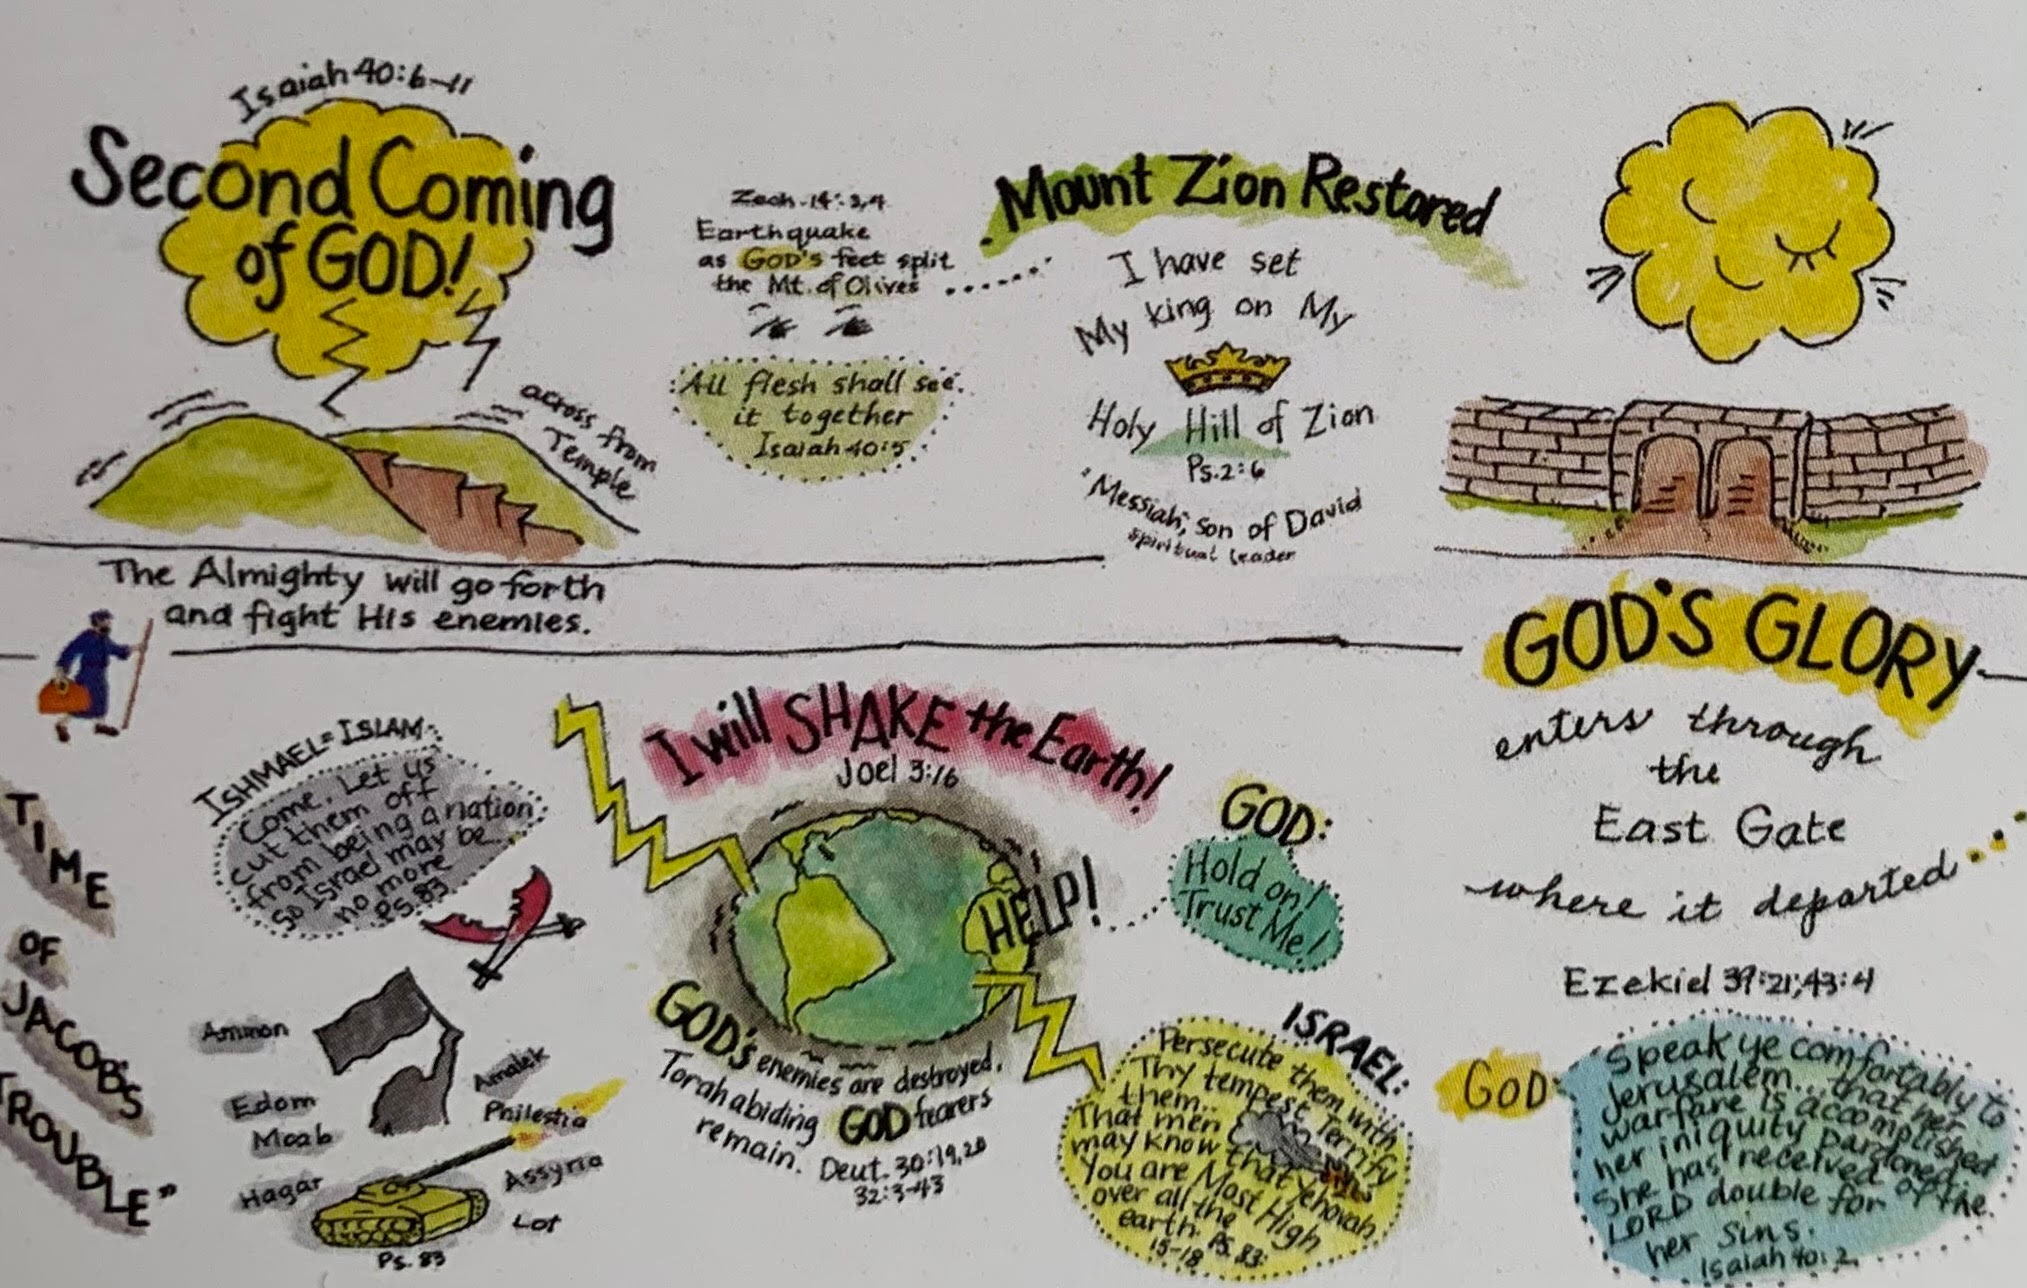 Isaiah 40:6-11
Second Coming
of GOD!
across from
Temple
Zech. 14:3,4
Earthquake
as GOD's feet split
the Mt. of Olives
All flesh shall see
it together
Isaiah 40:5
Mount Zion Restored
I have set
My king on My
Holy Hill of Zion
Ps. 2:6
"Messiah", son of David
spiritual leader
The Almighty will go forth
and fight His enemies.
GOD'S GLORY
enters through
the
East Gate
where it departed
Ezekiel 39:21; 43:4
TIME
OF
JACOB'S
TROUBLE"
ISHMAEL = ISLAM:
Come, Let us
cut them off
from being a nation
so Israel may be..
no more
Ps. 83
Ammon
Edom
Moab
Hagar
Amalek
Philestia
Assyria
Lot
Ps. 83
I will SHAKE the Earth!
Joel 3:16
HELP!
GOD:
Hold on!
Trust Me!
GOD's enemies are destroyed.
Torah abiding GOD fearers
remain. Deut. 30:19,20
32:3-43
ISRAEL:
Persecute them with
Thy tempest Terrify
them..
That men
may know that Yehovah
You are Most High
over all the
earth. Ps. 83:
15-18
GOD
Speak ye comfortably to
Jerusalem... that her
warfare is accomplished
her iniquity pardoned:
she has received of the
LORD double for
her sins.
Isaiah 40:2